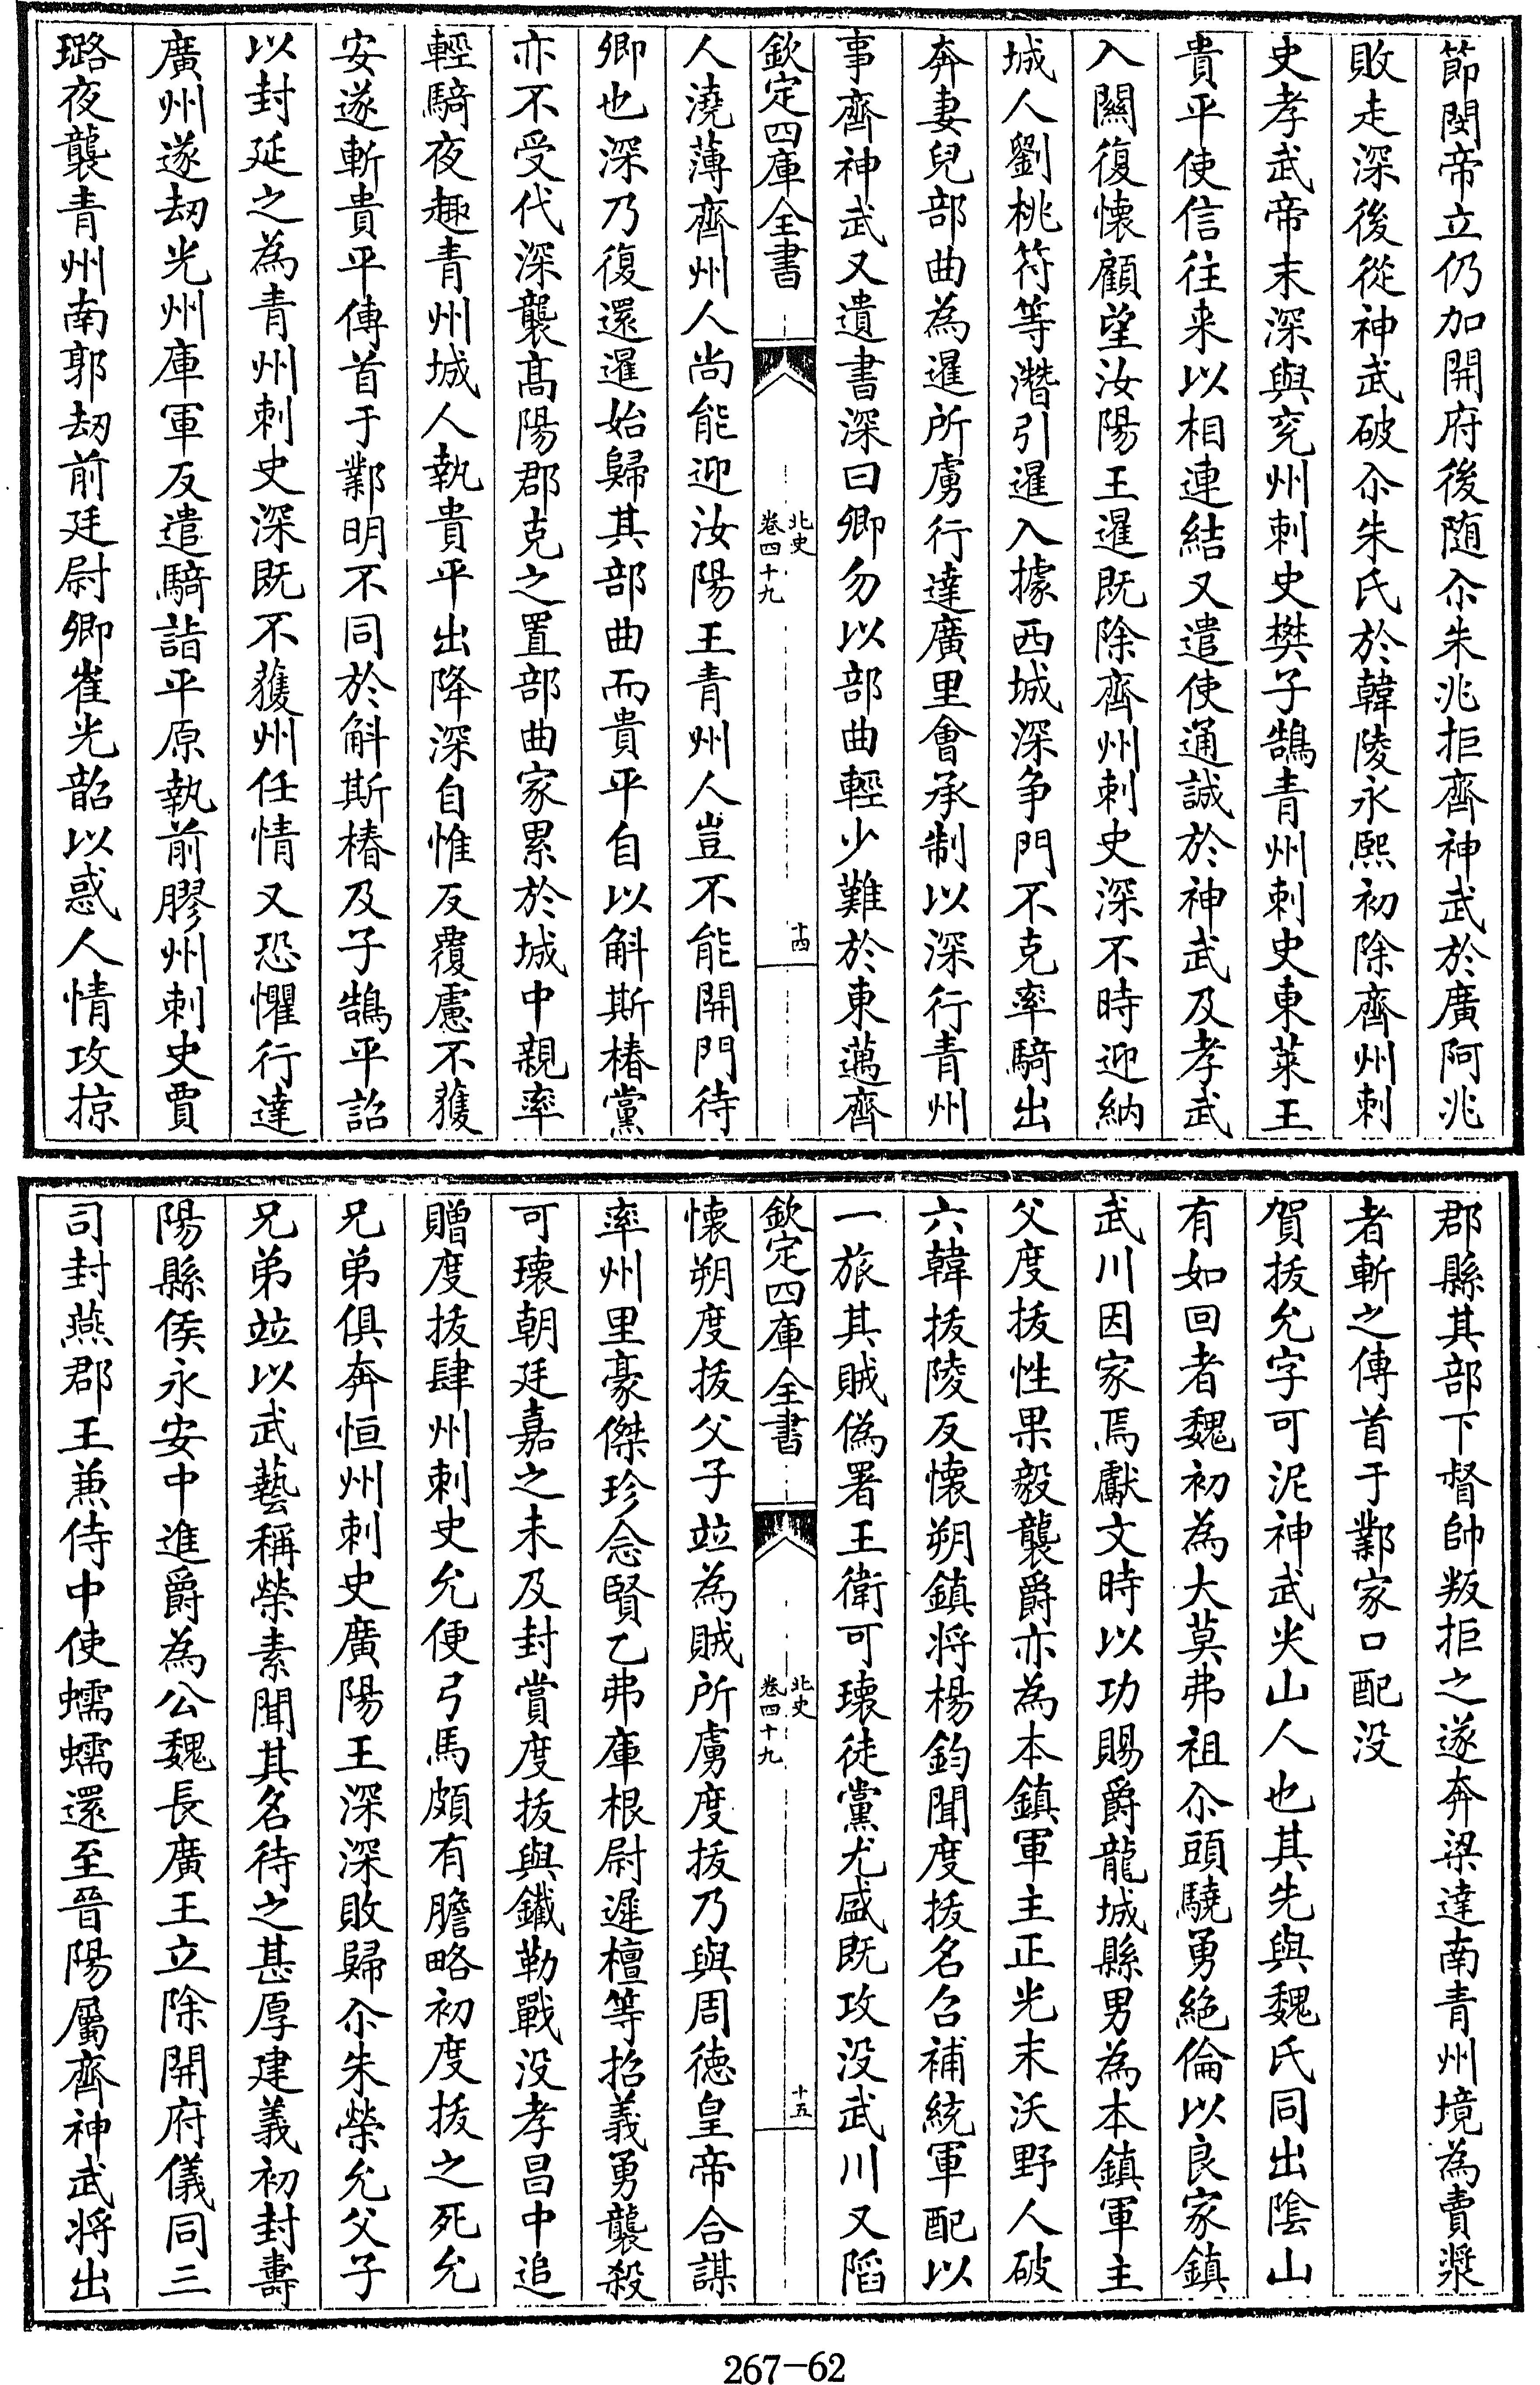 節閔帝立仍加開府後随尒朱兆拒齊神武於廣阿兆
敗走深後從神武破尒朱氏於韓陵永熙初除齊州刺
史孝武帝末深與兖州刺史樊子鵠青州刺史東萊王
貴平使信往来以相連結又遣使通誠於神武及孝武
入關復懐顧望汝陽王暹既除齊州刺史深不時迎納
城人劉桃符等潛引暹入據西城深争門不克率騎出
奔妻兒部曲為暹所虜行達廣里會承制以深行青州
事齊神武又遺書深曰卿勿以部曲輕少難於東邁齊
欽定四庫全書
北史
卷四十九
十四
人澆薄齊州人尚能迎汝陽王青州人豈不能開門待
卿也深乃復還暹始歸其部曲而貴平自以斛斯椿黨
亦不受代深襲髙陽郡克之置部曲家累於城中親率
輕騎夜趣青州城人執貴平出降深自惟反覆慮不獲
安遂斬貴平傳首于鄴明不同於斛斯椿及子鵠平詔
以封延之為青州刺史深既不獲州任情又恐懼行達
廣州遂刼光州庫軍反遣騎詣平原執前膠州刺史賈
璐夜襲青州南郭刼前廷尉卿崔光韶以惑人情攻掠
郡縣其部下督帥叛拒之遂奔梁達南青州境為賣漿
者斬之傳首于鄴家口配没
賀拔允字可泥神武尖山人也其先與魏氏同出陰山
有如回者魏初為大莫弗祖尒頭驍勇絶倫以良家鎮
武川因家焉獻文時以功賜爵龍城縣男為本鎮軍主
父度拔性果毅襲爵亦為本鎮軍主正光末沃野人破
六韓拔陵反懐朔鎮将楊鈞聞度拔名召補統軍配以
一旅其賊偽署王衛可瓌徒黨尤盛既攻没武川又陷
欽定四庫全書
北史
卷四十九
十五
懐朔度拔父子竝為賊所虜度拔乃與周德皇帝合謀
率州里豪傑珍念賢乙弗庫根尉遲檀等招義勇襲殺
可瓌朝廷嘉之未及封賞度拔與鐵勒戰没孝昌中追
贈度拔肆州刺史允便弓馬頗有膽略初度拔之死允
兄弟俱奔恒州刺史廣陽王深深敗歸尒朱榮允父子
兄弟竝以武藝稱榮素聞其名待之甚厚建義初封壽
陽縣侯永安中進爵為公魏長廣王立除開府儀同三
司封燕郡王兼侍中使蠕蠕還至晉陽屬齊神武将出
267-62